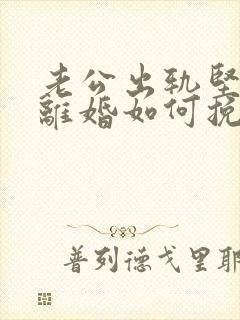 老公出轨坚
離婚如何挽
普列德戈里耶